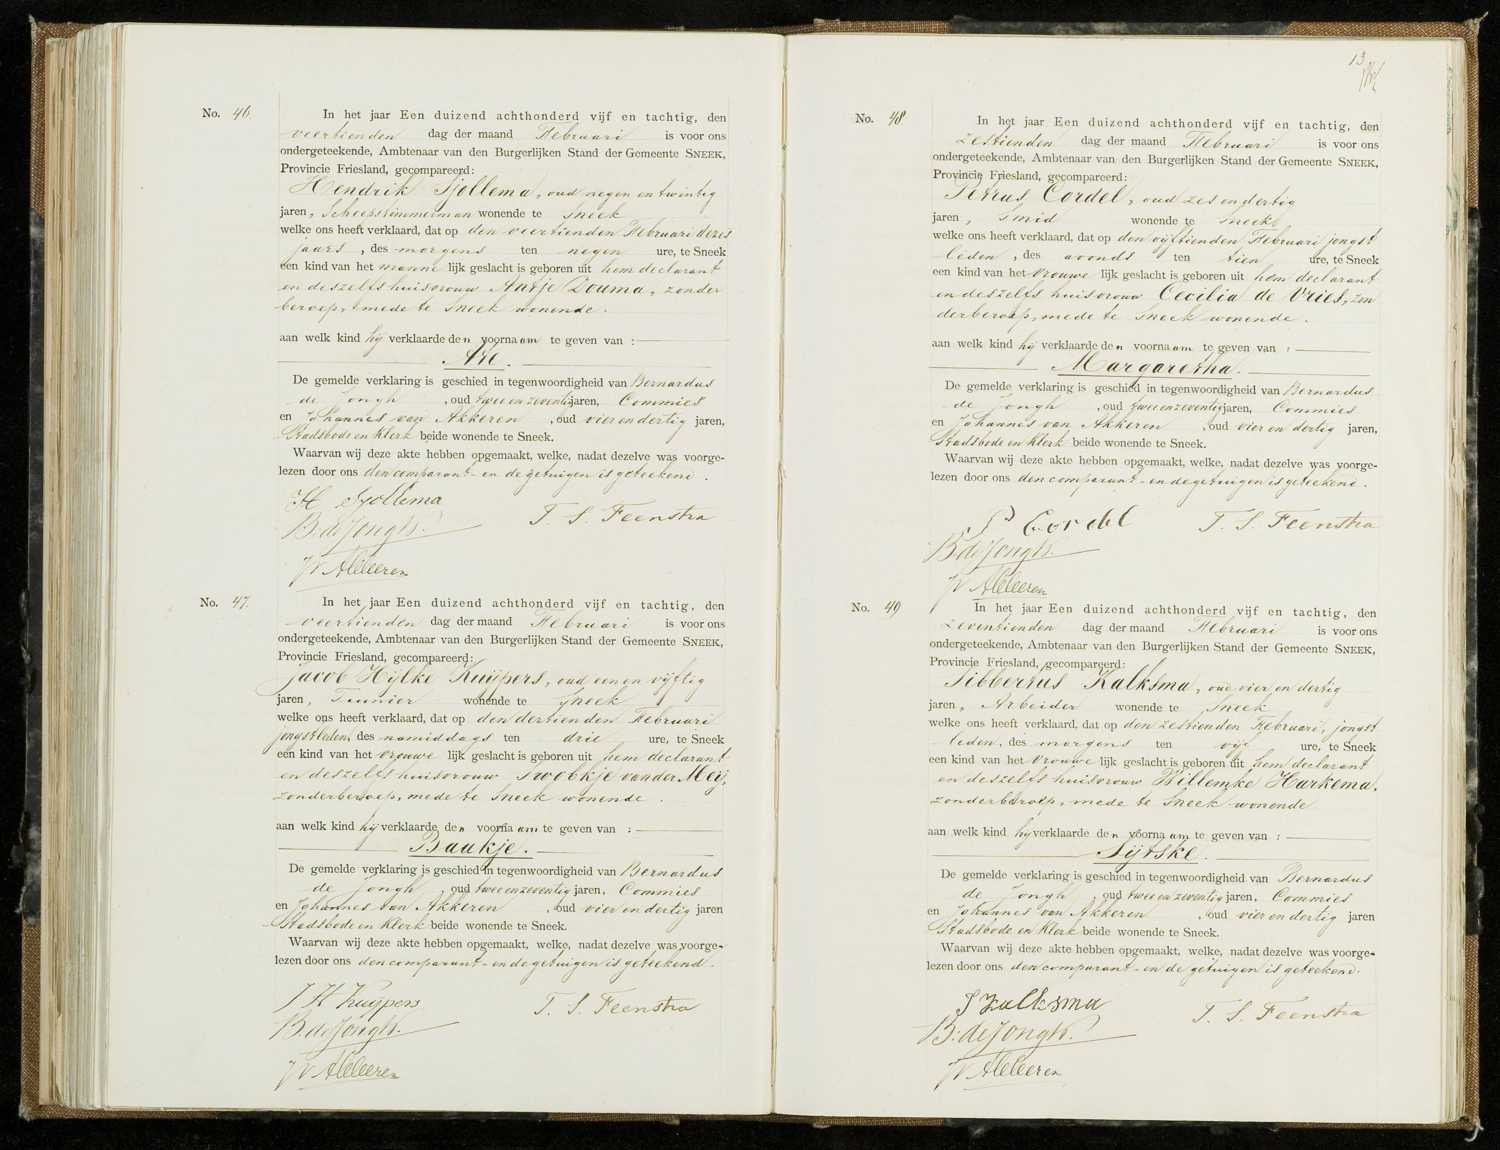 No. 46.
In het jaar Een duizend achthonderd vijf en tachtig, den
veertienden dag der maand Februari is voor ons
ondergeteekende, Ambtenaar van den Burgerlijken Stand der Gemeente SNEEK,
Provincie Friesland, gecompareerd:
Hendrik Sjollema, oud negen en twintig
jaren, Scheepstimmerman wonende te Sneek
welke ons heeft verklaard, dat op den veertienden Februari dezes
jaars, des morgens ten negen ure, te Sneek
een kind van het manne lijk geslacht is geboren uit hem declarant
en deszelfs huisvrouw Antje Douma, zonder
beroep, mede te Sneek wonende.
aan welk kind hij verklaarde den voornaam te geven van :
Ate.
De gemelde verklaring is geschied in tegenwoordigheid van Bernardus
de Jongh, oud twee en zeventig jaren, Commies
en Johannes van Akkeren, oud vier en dertig jaren,
Stadsbode en Klerk beide wonende te Sneek.
Waarvan wij deze akte hebben opgemaakt, welke, nadat dezelve was voorge-
lezen door ons den comparant en de getuigen is geteekend.
H Sjollema
B. de Jongh. T. S. Feenstra
JV Akkeren
No. 47.
In het jaar Een duizend achthonderd vijf en tachtig, den
veertienden dag der maand Februari is voor ons
ondergeteekende, Ambtenaar van den Burgerlijken Stand der Gemeente SNEEK,
Provincie Friesland, gecompareerd:
Jacob Hylke Kuijpers, oud een en vijftig
jaren, Tuinier wonende te Sneek
welke ons heeft verklaard, dat op den dertienden Februari
jongstleden, des namiddags ten drie ure, te Sneek
een kind van het vrouwe lijk geslacht is geboren uit hem declarant
en deszelfs huisvrouw Swobkje van der Meij,
zonder beroep, mede te Sneek wonende.
aan welk kind hij verklaarde den voornaam te geven van :
Baukje.
De gemelde verklaring is geschied in tegenwoordigheid van Bernardus
de Jongh, oud twee en zeventig jaren, Commies
en Johannes van Akkeren, oud vier en dertig jaren
Stadsbode en Klerk beide wonende te Sneek.
Waarvan wij deze akte hebben opgemaakt, welke, nadat dezelve was voorge-
lezen door ons den comparant en de getuigen is geteekend.
J H Kuijpers T. S. Feenstra
B. de Jongh.
JV Akkeren
13
No. 48
In het jaar Een duizend achthonderd vijf en tachtig, den
zestienden dag der maand Februari is voor ons
ondergeteekende, Ambtenaar van den Burgerlijken Stand der Gemeente SNEEK,
Provincie Friesland, gecompareerd:
Petrus Cordel, oud zes en dertig
jaren, Smid wonende te Sneek
welke ons heeft verklaard, dat op den vijftienden Februari jongst
leden, des avonds ten tien ure, te Sneek
een kind van het vrouwe lijk geslacht is geboren uit hem declarant
en deszelfs huisvrouw Cecilia de Vries, zon
der beroep, mede te Sneek wonende.
aan welk kind hij verklaarde den voornaam te geven van :
Margaretha.
De gemelde verklaring is geschied in tegenwoordigheid van Bernardus
de Jongh, oud twee en zeventig jaren, Commies
en Johannes van Akkeren, oud vier en dertig jaren,
Stadsbode en Klerk beide wonende te Sneek.
Waarvan wij deze akte hebben opgemaakt, welke, nadat dezelve was voorge-
lezen door ons den comparant en de getuigen is geteekend.
P Cordel T. S. Feenstra
B. de Jongh.
JV Akkeren
No. 49
In het jaar Een duizend achthonderd vijf en tachtig, den
zeventienden dag der maand Februari is voor ons
ondergeteekende, Ambtenaar van den Burgerlijken Stand der Gemeente SNEEK,
Provincie Friesland, gecompareerd:
Sibbertus Kalksma, oud vier en dertig
jaren, Arbeider wonende te Sneek
welke ons heeft verklaard, dat op den zestienden Februari, jongst
leden, des morgens ten vijf ure, te Sneek
een kind van het vrouwe lijk geslacht is geboren uit hem declarant
en deszelfs huisvrouw Willemke Harkema,
zonder beroep, mede te Sneek wonende
aan welk kind hij verklaarde den voornaam te geven van :
Sijtske.
De gemelde verklaring is geschied in tegenwoordigheid van Bernardus
de Jongh, oud twee en zeventig jaren, Commies
en Johannes van Akkeren, oud vier en dertig jaren
Stadsbode en Klerk beide wonende te Sneek.
Waarvan wij deze akte hebben opgemaakt, welke, nadat dezelve was voorge-
lezen door ons den comparant en de getuigen is geteekend.
S Kalksma
B. de Jongh. T. S. Feenstra
JV Akkeren